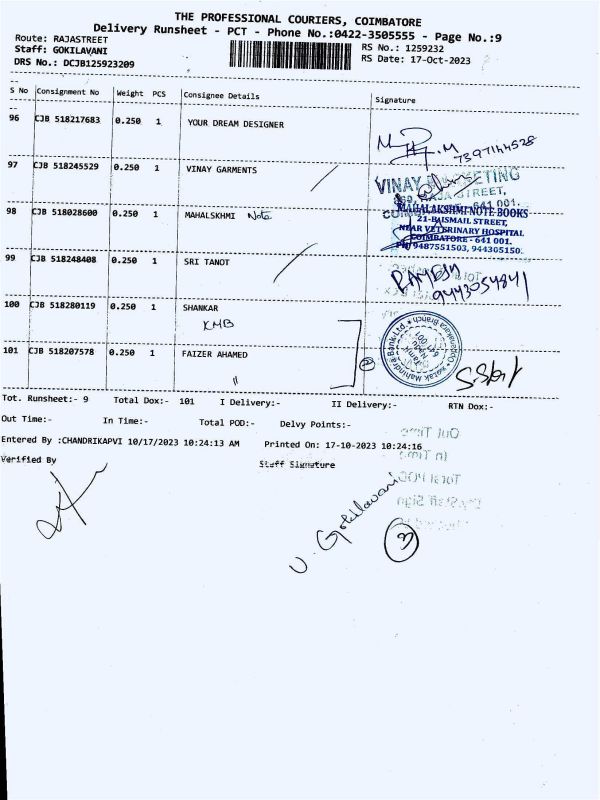 THE PROFESSIONAL COURIERS, COIMBATORE
Delivery Runsheet - PCT - Phone No.:0422-3505555 - Page No.:9
Route: RAJASTREET
RS No.: 1259232
Staff: GOKILAVANI
RS Date: 17-Oct-2023
DRS No.: DCJB125923209
S No Consignment No Weight PCS Consignee Details Signature
96 CJB 518217683 0.250 1 YOUR DREAM DESIGNER
7397144528
97 CJB 518245529 0.250 1 VINAY GARMENTS
VINAY MARKETING
98 CJB 518028600 0.250 1 MAHALSKHMI Note
MAHALAKSHMI NOTE BOOKS
21-BAISMAIL STREET,
NEAR VETERINARY HOSPITAL
COIMBATORE - 641 001.
PH: 9487551503, 944305150
99 CJB 518248408 0.250 1 SRI TANOT
RAMESH
9443054841
100 CJB 518280119 0.250 1 SHANKAR
KMB
Kotak Mahindra Bank Ltd. Oppanakara Branch
101 CJB 518207578 0.250 1 FAIZER AHAMED
"
Tot. Runsheet:- 9 Total Dox:- 101 I Delivery:- II Delivery:- RTN Dox:-
Out Time:- In Time:- Total POD:- Delvy Points:-
Entered By :CHANDRIKAPVI 10/17/2023 10:24:13 AM Printed On: 17-10-2023 10:24:16
Verified By Staff Signature
Out Time
In Time
Total POD
Staff Sign
V. Gokilavani